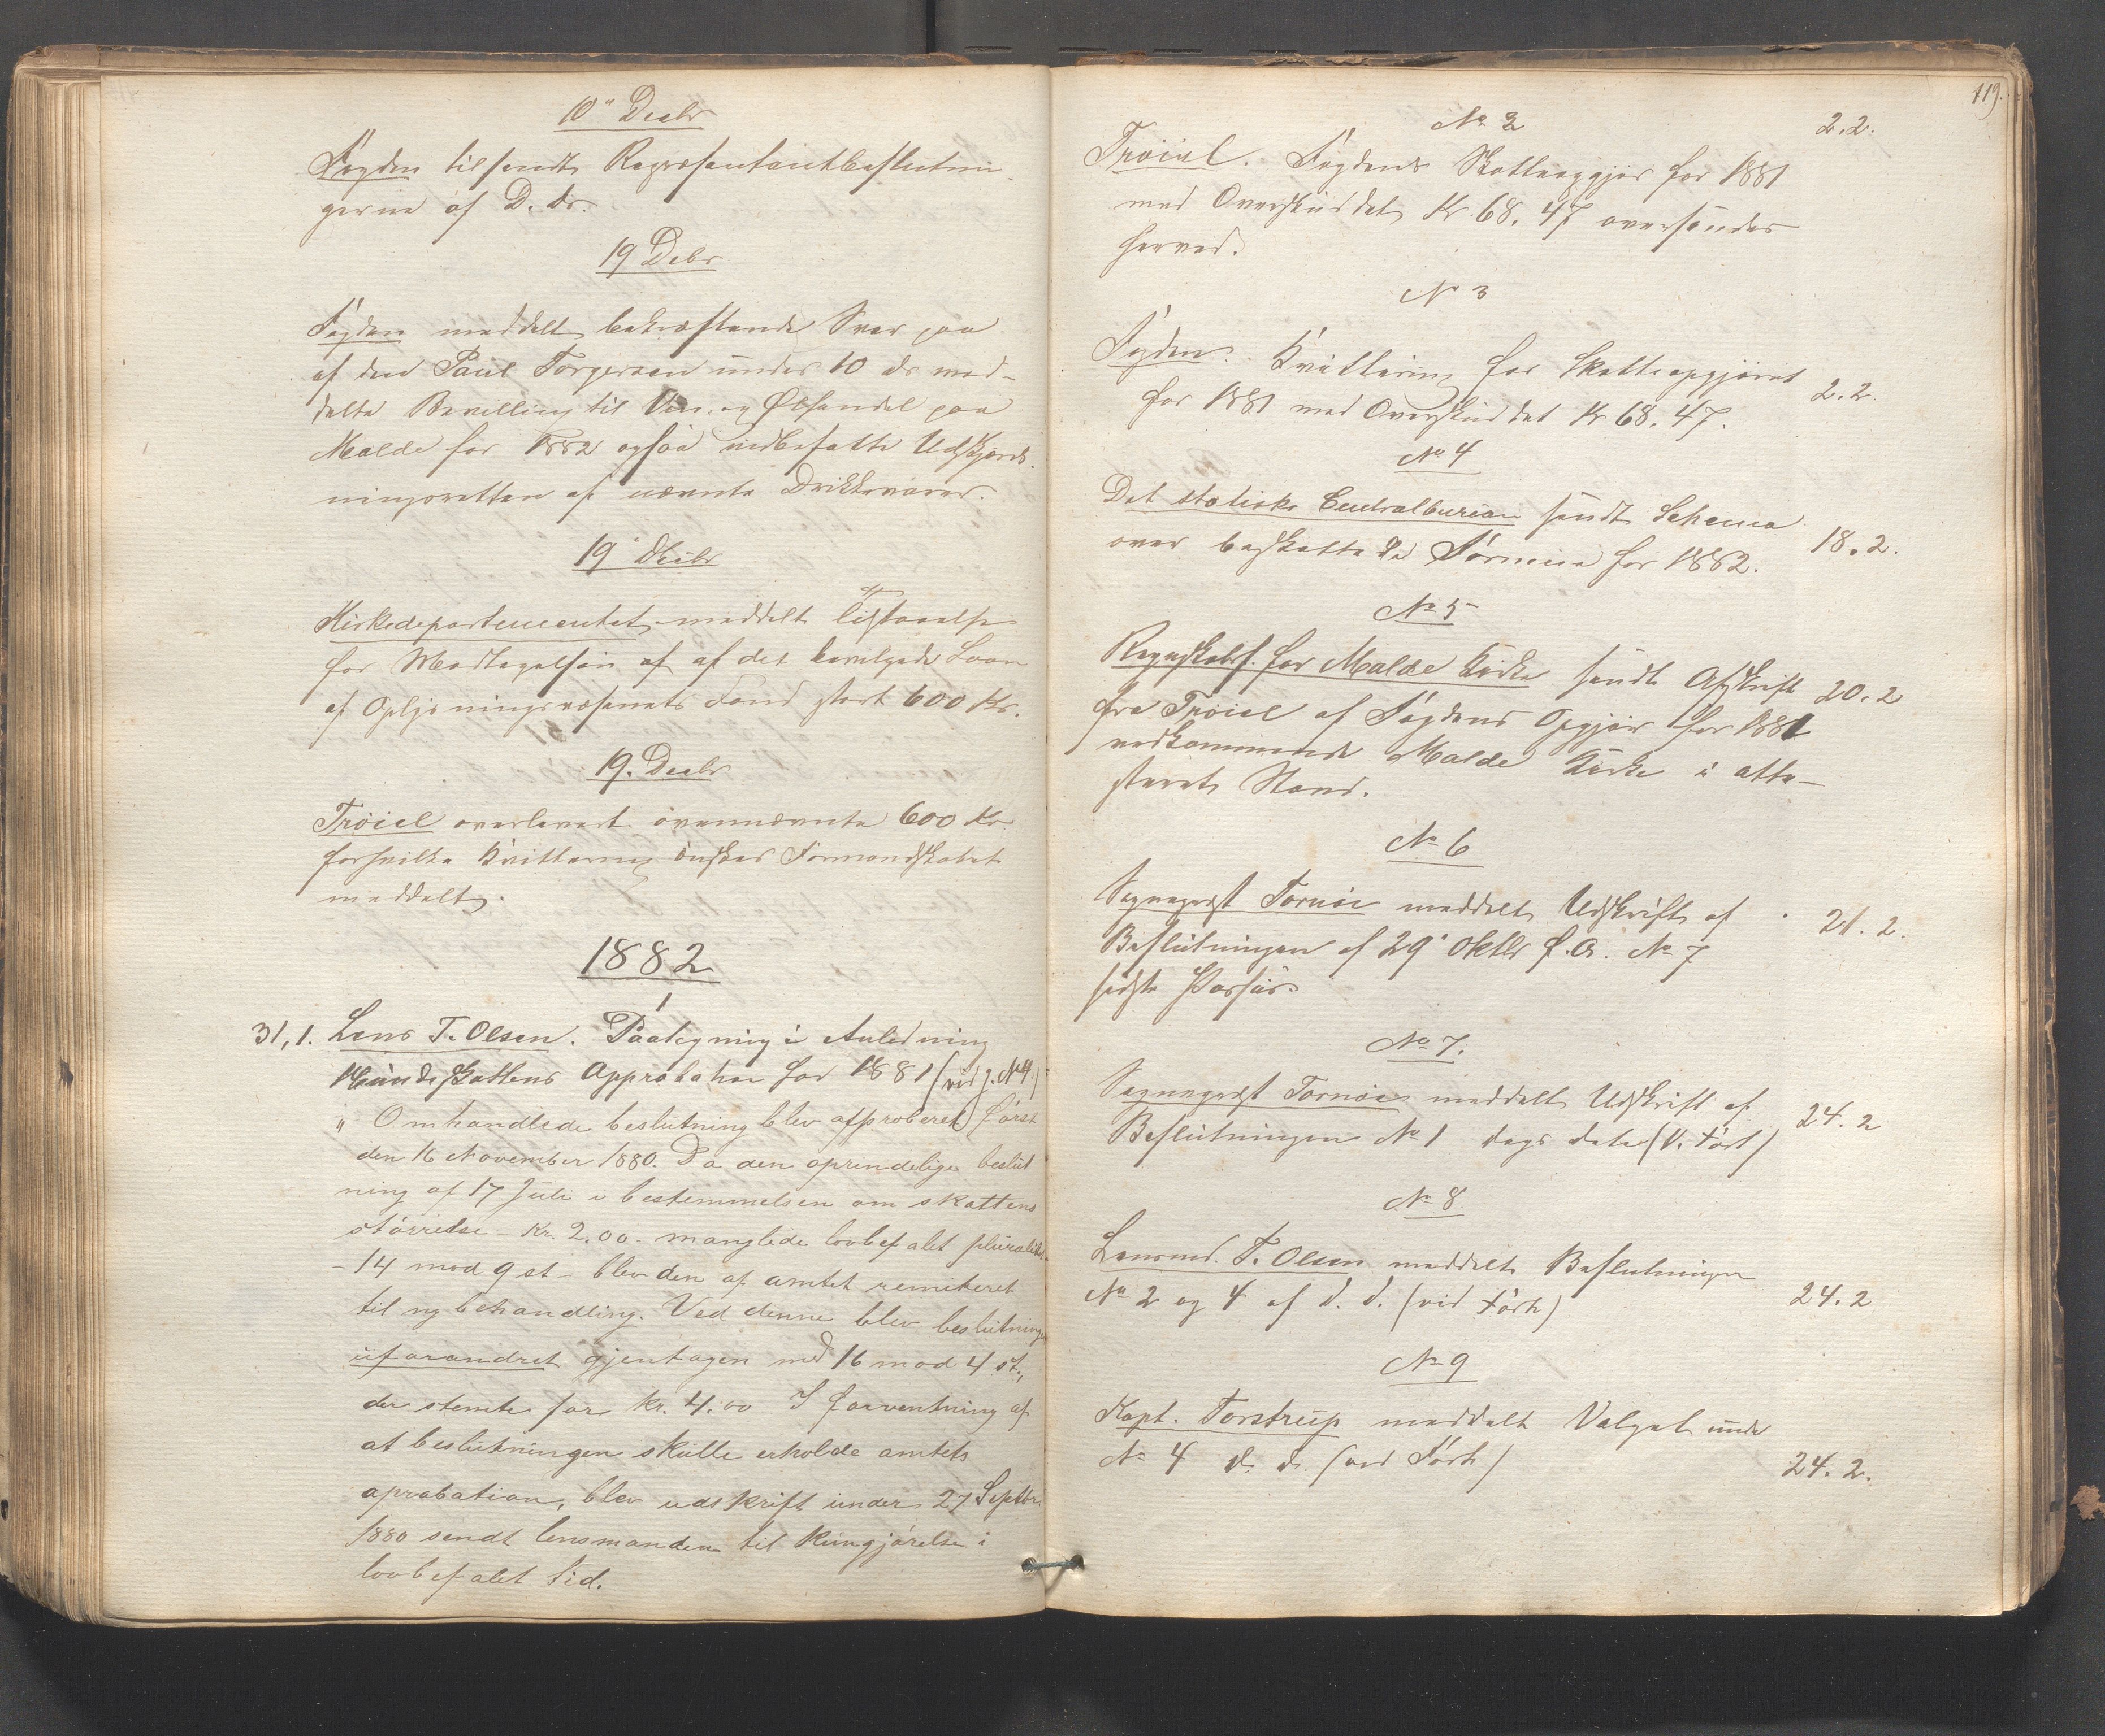 10" Decbr
Fogden tilsendt Repræsentantbeslutnin-
gerne af D. Ds.
19 Debr
Fogden meddelt bekræftende Svar paa
af den Paul Torgersen under 10 ds med-
delte Bevilling til Vin- og Ølhandel paa
Malde for 1882 ogsaa indbefatte Udskjænk-
ningsretten af nævnte Drikkevarer.
19' Decbr
Kirkedepartementet meddelt Tilstaaelse
for Modtagelsen af af det bevilgede Laan
af Oplysningsvæsenets Fond stort 600 Kr.
19. Decbr
Trøiel overleveret ovennævnte 600 Kr.
forhvilke Kvittering ønskes Formandskabet
meddelt.
1882
1
31,1. Lens T. Olsen. Paategning i Anledning
Hundeskattens Approbation for 1881 (vid j. No 4.)
" Omhandlede beslutning blev approberet først
den 16 November 1880. Da den oprindelige beslut
ning af 17 Juli i bestemmelsen om skattens
størrelse - Kr. 2.00 - manglede lovbefalet pluralitet
- 14 mod 9 st - blev den af amtet remitteret
til ny behandling. Ved denne blev beslutningen
uforandret gjentagen med 16 mod 4 st.,
der stemte for Kr. 4.00 I forventning af
at beslutningen skulle erholde amtets
aprobation, blev udskrift under 27 Septbr.
1880 sendt lensmanden til kungjørelse i
lovbefalet tid.
119.
No 2
2.2.
Trøiel. Fogdens Skatteopgjør for 1881
med Overskuddet Kr. 68.47 oversendes
herved.
No 3
Fogden. Kvittering for Skatteopgjøret
for 1881 med Overskuddet Kr 68.47.
2.2.
No 4
Det statiske Centralbureau sendt Schema
over beskattede Formue for 1882.
18.2.
No 5
Regnskabsf. for Malde Kirke sendt Afskrift
20.2
fra Trøiel af Fogdens Opgjør for 1881
vedkommende Malde Kirke i atte-
steret Stand.
No 6
Sogneprest Tornøe meddelt Udskrift af
21.2.
Beslutningen af 29' Oktbr f. A. No 7
sidste Passus.
No 7.
Sogneprest Tornøe meddelt Udskrift af
24.2
Beslutningen No 1 dags dato (v. Forh)
No 8
Lensmd. T. Olsen meddelt Beslutninger
No 2 og 4 af d. d. (vid Forh)
24.2
No 9
Kapt. Torstrup meddelt Valget under
No 4 d. d. (vid Forh)
24.2.